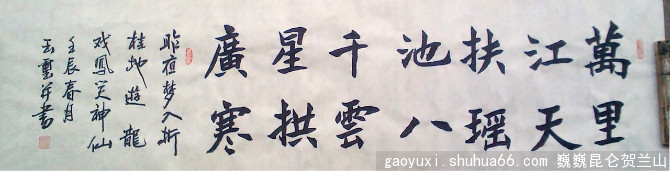 萬里
江天
扶瑶
池八
千雲
星拱
廣寒
昨夜梦入折
桂地遊龍
戏鳳笑神仙
壬辰春月
玉并書
gaoyuxi.shuhua66.com 巍巍昆仑贺兰山